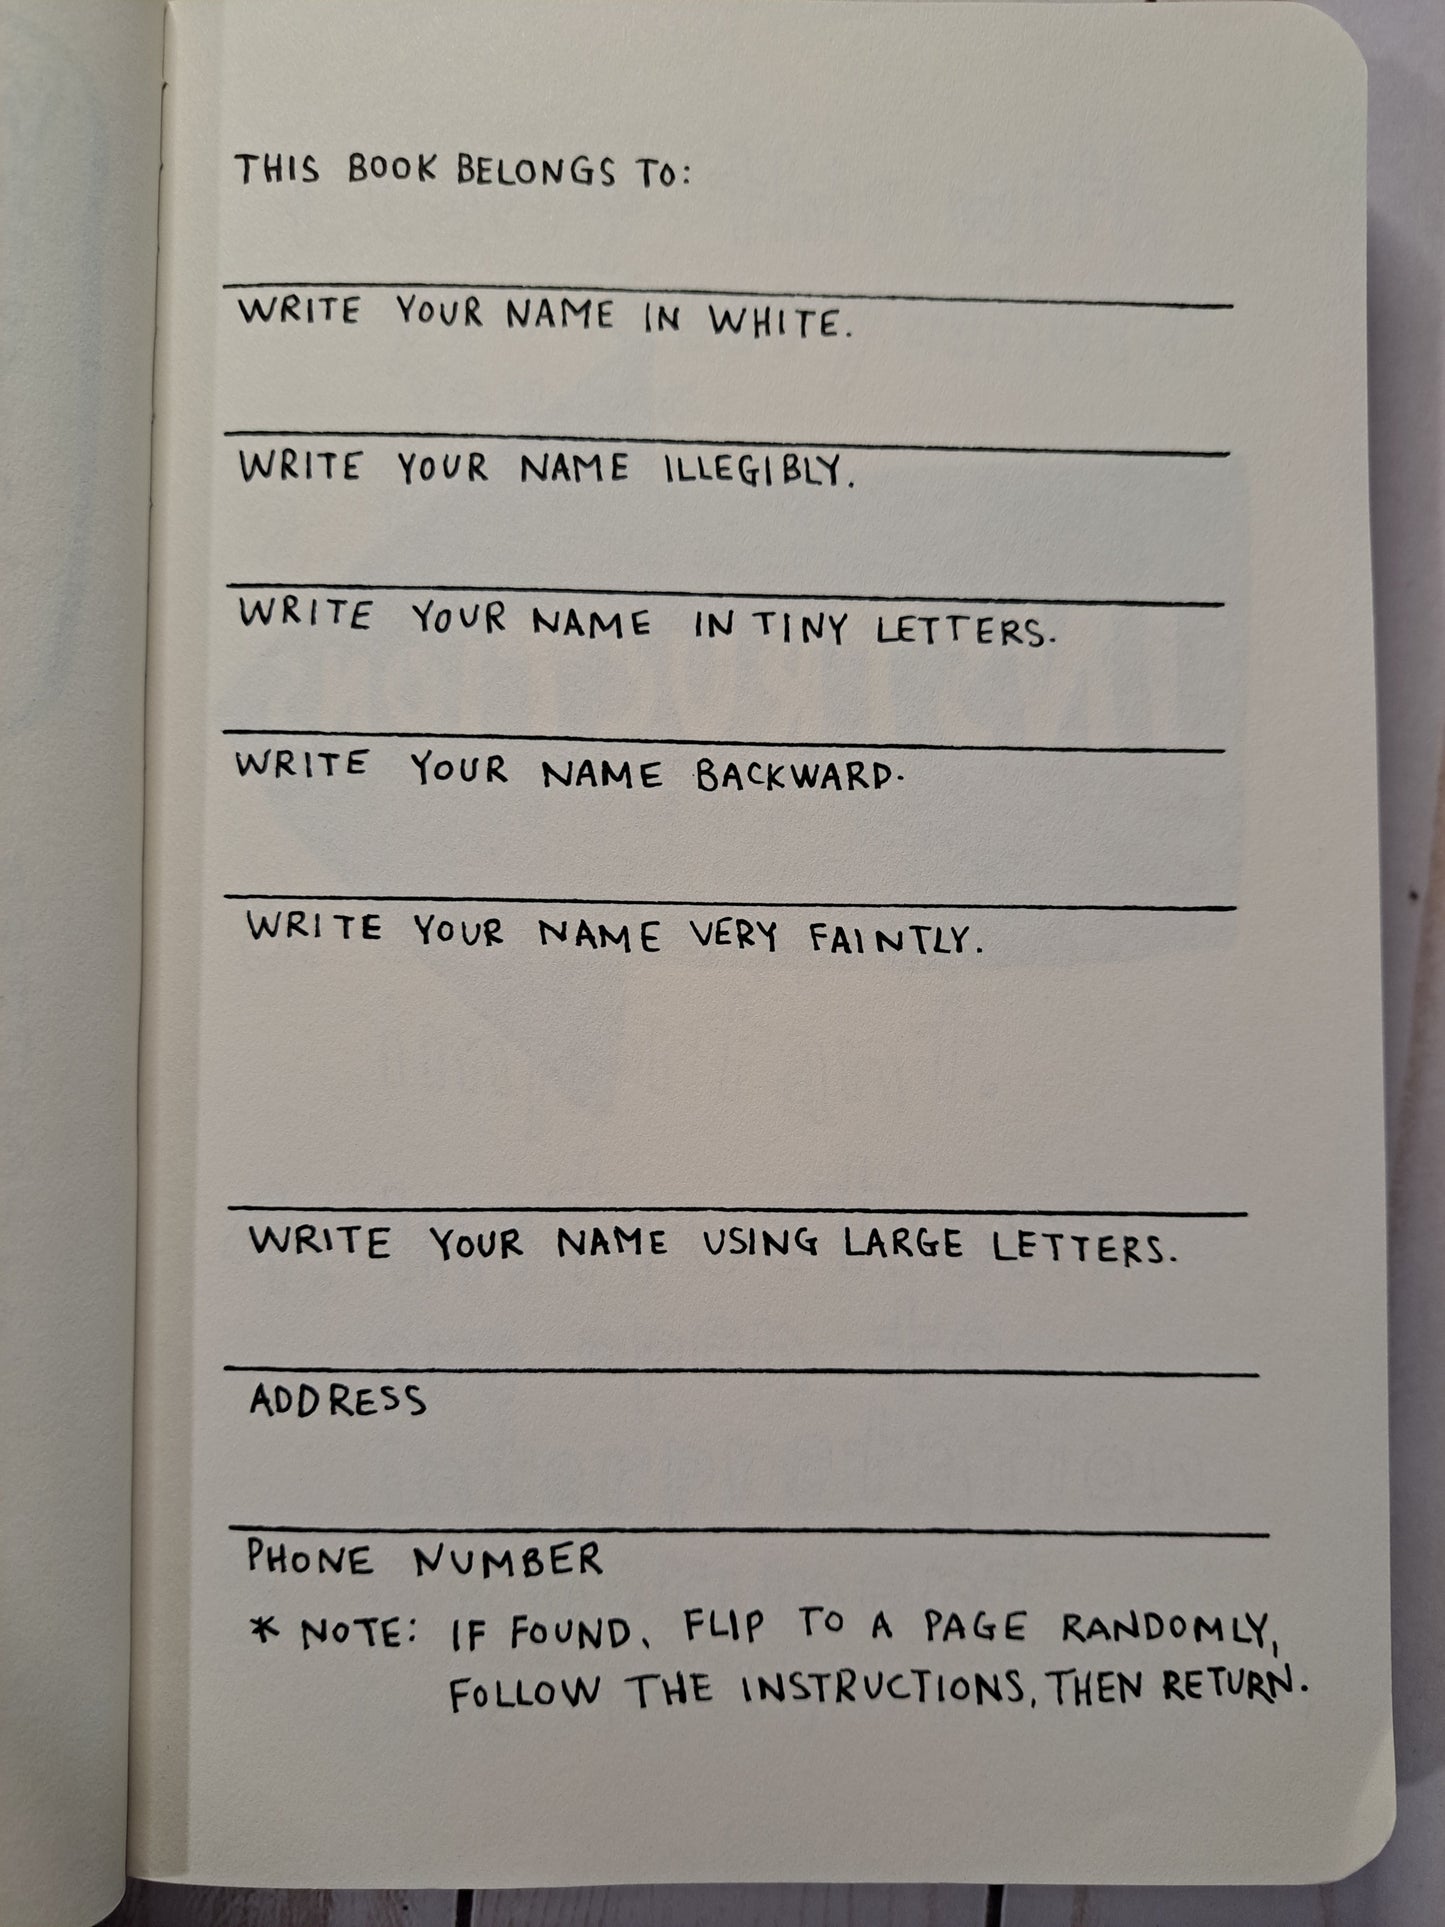 THIS BOOK BELONGS TO:
WRITE YOUR NAME IN WHITE.
WRITE YOUR NAME ILLEGIBLY.
WRITE YOUR NAME IN TINY LETTERS.
WRITE YOUR NAME BACKWARD.
WRITE YOUR NAME VERY FAINTLY.
WRITE YOUR NAME USING LARGE LETTERS.
ADDRESS
PHONE NUMBER
* NOTE: IF FOUND, FLIP TO A PAGE RANDOMLY,
FOLLOW THE INSTRUCTIONS, THEN RETURN.